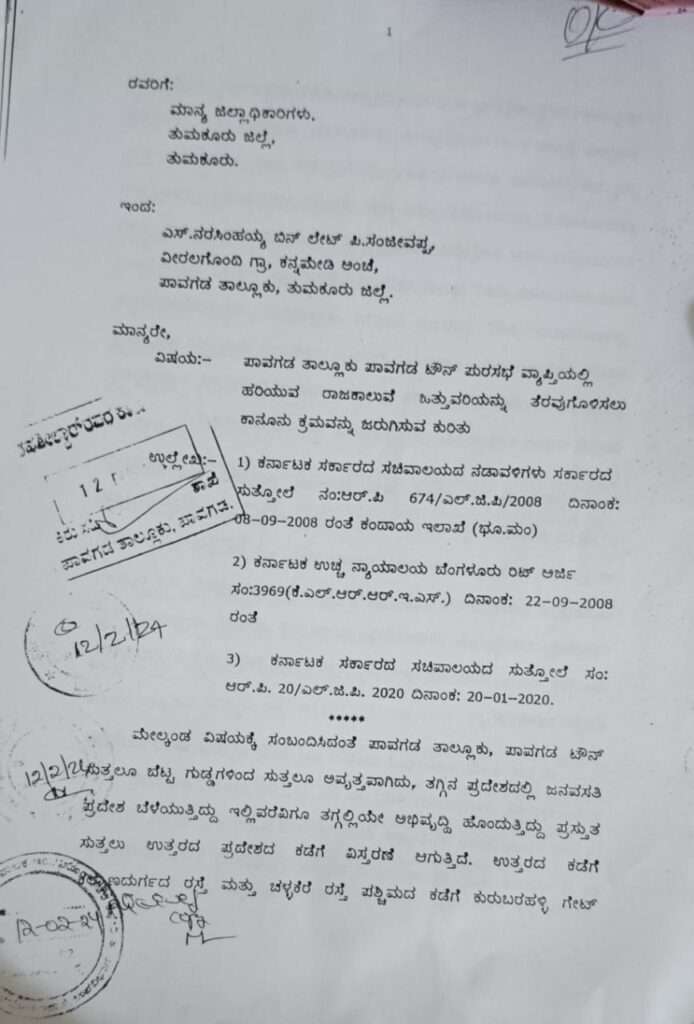 OK
1
ರವರಿಗೆ:
ಮಾನ್ಯ ಜಿಲ್ಲಾಧಿಕಾರಿಗಳು.
ತುಮಕೂರು ಜಿಲ್ಲೆ,
ತುಮಕೂರು.
ಇಂದ:
ಎಸ್.ನರಸಿಂಹಯ್ಯ ಬಿನ್ ಲೇಟ್ ಪಿ.ಸಂಜೀವಪ್ಪ,
ವೀರಲಗೊಂದಿ ಗ್ರಾ, ಕನ್ನಮೇಡಿ ಅಂಚೆ,
ಪಾವಗಡ ತಾಲ್ಲೂಕು, ತುಮಕೂರು ಜಿಲ್ಲೆ.
ಮಾನ್ಯರೇ,
ವಿಷಯ:– ಪಾವಗಡ ತಾಲ್ಲೂಕು ಪಾವಗಡ ಟೌನ್ ಪುರಸಭೆ ವ್ಯಾಪ್ತಿಯಲ್ಲಿ
ಹರಿಯುವ ರಾಜಕಾಲುವೆ ಒತ್ತುವರಿಯನ್ನು ತೆರವುಗೊಳಿಸಲು
ಕಾನೂನು ಕ್ರಮವನ್ನು ಜರುಗಿಸುವ ಕುರಿತು
ಉಲ್ಲೇಖ:– 1) ಕರ್ನಾಟಕ ಸರ್ಕಾರದ ಸಚಿವಾಲಯದ ನಡಾವಳಿಗಳು ಸರ್ಕಾರದ
ಸುತ್ತೋಲೆ ನಂ:ಆರ್.ಪಿ 674/ಎಲ್.ಜಿ.ಪಿ/2008 ದಿನಾಂಕ:
08-09-2008 ರಂತೆ ಕಂದಾಯ ಇಲಾಖೆ (ಭೂ.ಮಂ)
12
ಶಾಖೆ
ಪಾವಗಡ ತಾಲ್ಲೂಕು, ಪಾವಗಡ.
2) ಕರ್ನಾಟಕ ಉಚ್ಚ ನ್ಯಾಯಾಲಯ ಬೆಂಗಳೂರು ರಿಟ್ ಅರ್ಜಿ
ಸಂ:3969(ಕೆ.ಎಲ್.ಆರ್.ಆರ್.ಇ.ಎಸ್.) ದಿನಾಂಕ: 22-09-2008
ರಂತೆ
12/2/24
3) ಕರ್ನಾಟಕ ಸರ್ಕಾರದ ಸಚಿವಾಲಯದ ಸುತ್ತೋಲೆ ಸಂ:
ಆರ್.ಪಿ. 20/ಎಲ್.ಜಿ.ಪಿ. 2020 ದಿನಾಂಕ: 20-01-2020.
*****
ಮೇಲ್ಕಂಡ ವಿಷಯಕ್ಕೆ ಸಂಬಂದಿಸಿದಂತೆ ಪಾವಗಡ ತಾಲ್ಲೂಕು, ಪಾವಗಡ ಟೌನ್
12/2/24
ಸುತ್ತಲೂ ಬೆಟ್ಟ ಗುಡ್ಡಗಳಿಂದ ಸುತ್ತಲೂ ಅವೃತ್ತವಾಗಿದು, ತಗ್ಗಿನ ಪ್ರದೇಶದಲ್ಲಿ ಜನವಸತಿ
ಪ್ರದೇಶ ಬೆಳೆಯುತ್ತಿದ್ದು ಇಲ್ಲಿವರೆವಿಗೂ ತಗ್ಗಲ್ಲಿಯೇ ಅಭಿವೃದ್ದಿ ಹೊಂದುತ್ತಿದ್ದು ಪ್ರಸ್ತುತ
ಸುತ್ತಲು ಉತ್ತರದ ಪ್ರದೇಶದ ಕಡೆಗೆ ವಿಸ್ತರಣೆ ಆಗುತ್ತಿದೆ. ಉತ್ತರದ ಕಡೆಗೆ
ಕಲ್ಯಾಣದುರ್ಗದ ರಸ್ತೆ ಮತ್ತು ಚಳ್ಳಕೆರೆ ರಸ್ತೆ ಪಶ್ಚಿಮದ ಕಡೆಗೆ ಕುರುಬರಹಳ್ಳಿ ಗೇಟ್
12-02-24